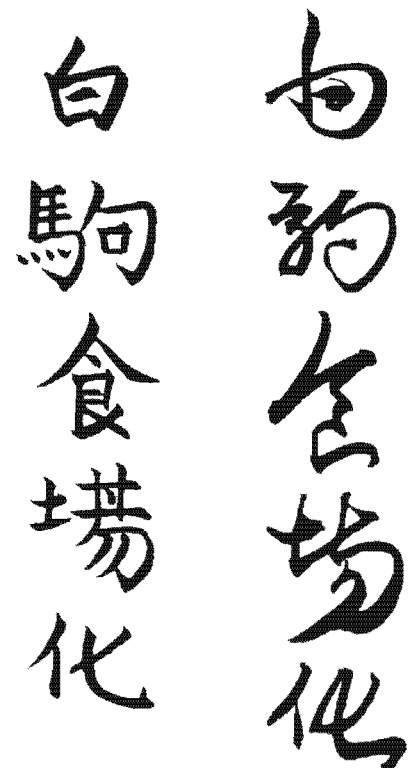 白駒食場化
白駒食場化